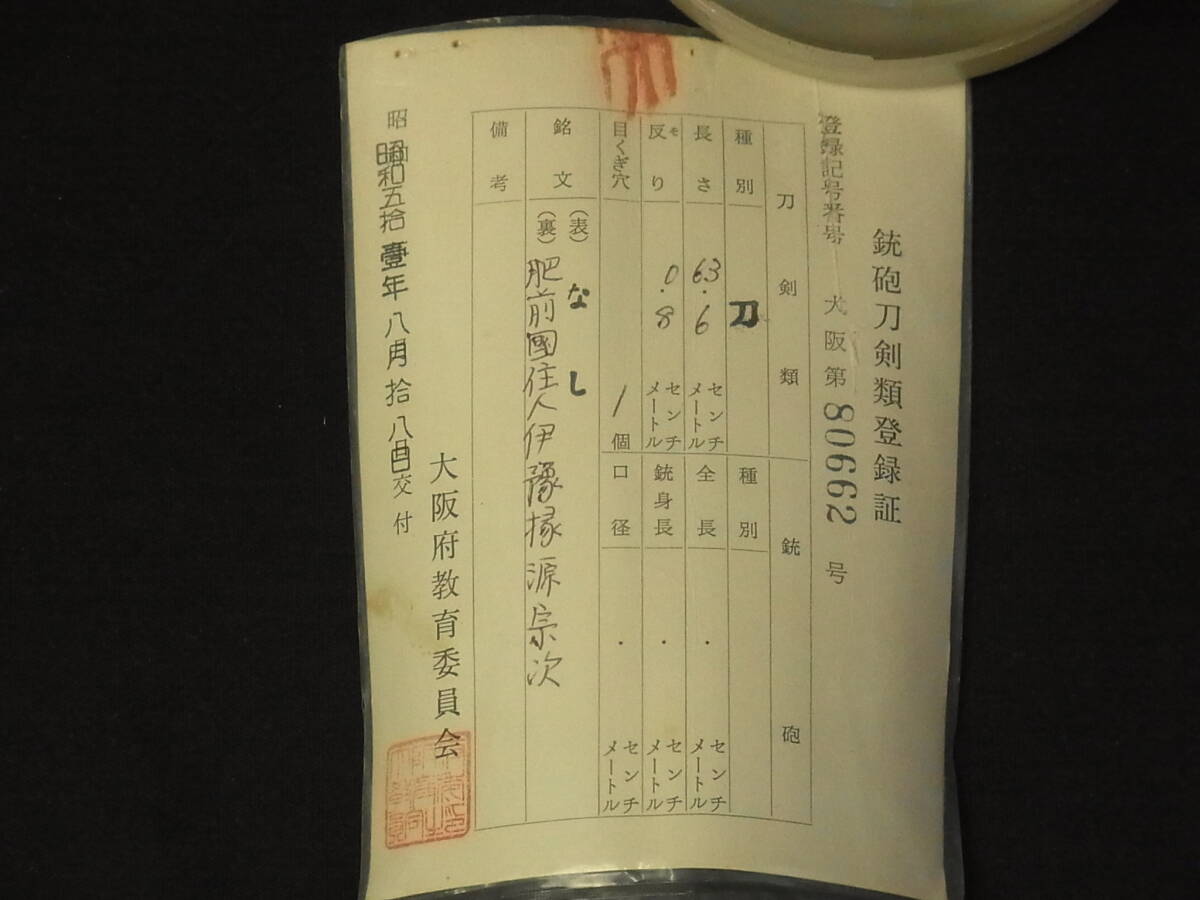 銃砲刀剣類登録証
登録記号番号 大阪第80662号
刀剣類
銃砲
種別 刀
長さ 63.6 センチメートル
反り 0.8 センチメートル
目くぎ穴 1個
種別
全長 ・ センチメートル
銃身長 ・ センチメートル
口径 ・ センチメートル
銘文 (表) なし
(裏) 肥前國住人伊豫掾源宗次
備考
昭和五拾壹年八月拾八日交付
大阪府教育委員会